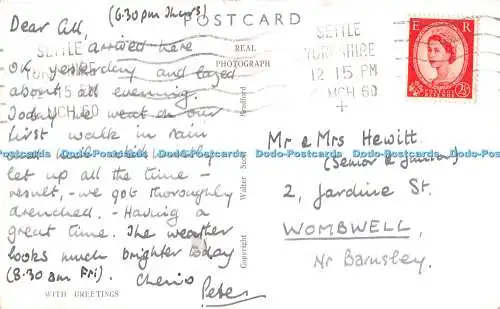 Dear All, (6.30 pm Thurs)
arrived here
OK yesterday and lazed
about all evening.
Today we went on our
first walk in rain
let up all the time -
result, - we got thoroughly
drenched. - Having a
great time. The weather
looks much brighter today
(8.30 am Fri). Cheerio
Peter
WITH GREETINGS
POSTCARD
REAL
PHOTOGRAPH
Copyright Walter Scott Bradford
SETTLE
YORKSHIRE
12 15 PM
MCH 60
E R
2½D
Mr & Mrs Hewitt
(Senior & Junior)
2, Jardine St.
WOMBWELL,
Nr Barnsley.
Dodo-Postcards Dodo-Postcards Dodo-Postcards Dodo-Postcards Dodo-Postcards